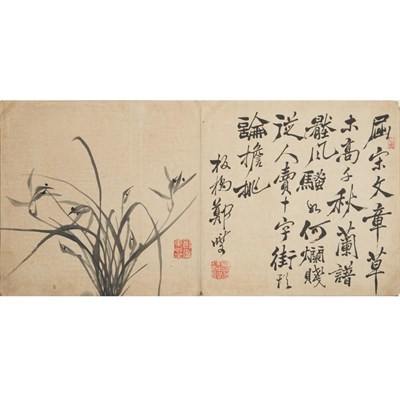 屈宋文章草
木高千秋蘭譜
壓風騷如何爛賤
從人賣十字街頭
論擔挑
板橋鄭燮